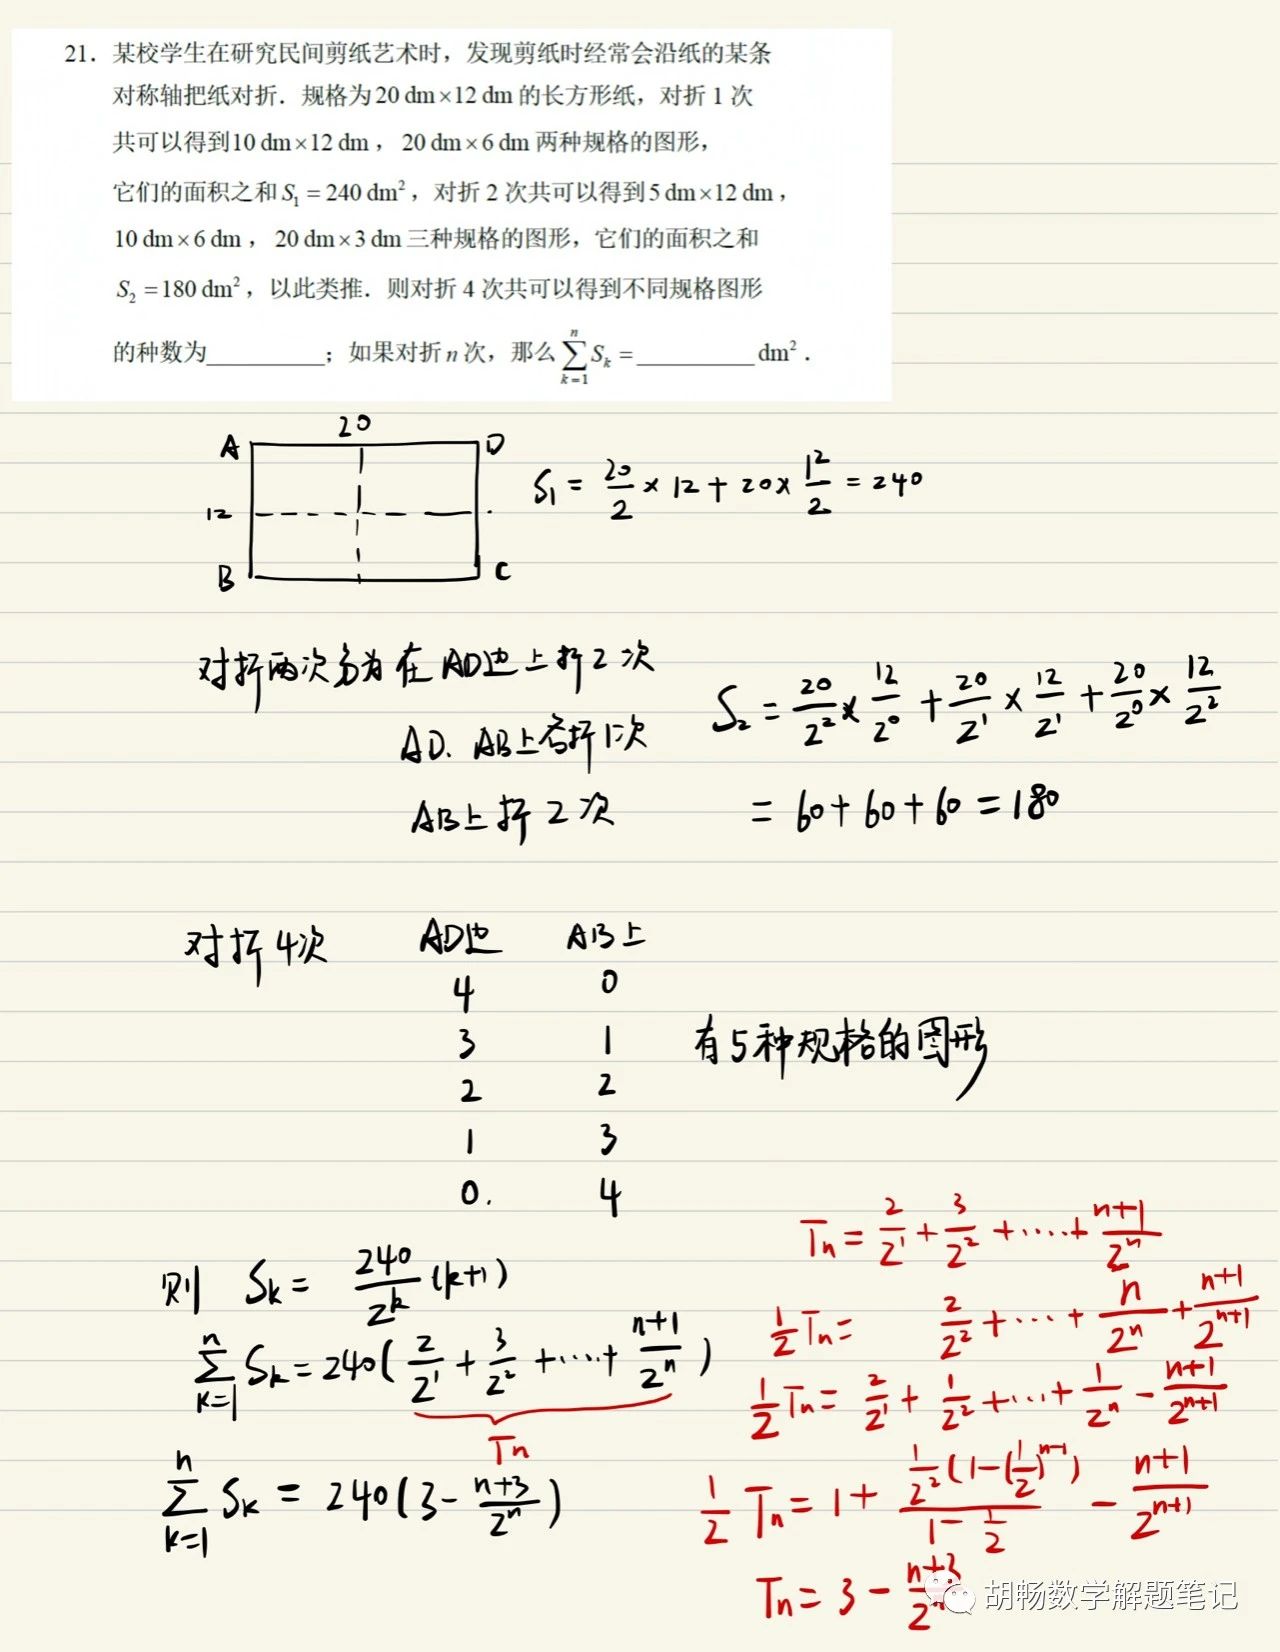 21. 某校学生在研究民间剪纸艺术时，发现剪纸时经常会沿纸的某条
对称轴把纸对折．规格为20 dm×12 dm 的长方形纸，对折 1 次
共可以得到10 dm×12 dm，20 dm×6 dm 两种规格的图形，
它们的面积之和 S₁ = 240 dm²，对折 2 次共可以得到 5 dm×12 dm，
10 dm×6 dm，20 dm×3 dm 三种规格的图形，它们的面积之和
S₂ =180 dm²，以此类推．则对折 4 次共可以得到不同规格图形
的种数为__________；如果对折 n 次，那么 \sum_{k=1}^{n} S_k = __________ dm²．
20
A D
12
B C
S₁ = \frac{20}{2} × 12 + 20 × \frac{12}{2} = 240
对折两次分为 在 AD边上折 2 次
AD、AB上各折1次
AB上折 2 次
S₂ = \frac{20}{2^2} × \frac{12}{2^0} + \frac{20}{2^1} × \frac{12}{2^1} + \frac{20}{2^0} × \frac{12}{2^2}
= 60 + 60 + 60 = 180
对折 4次 AD边 AB上
4 0
3 1
2 2
1 3
0. 4
有 5 种规格的图形
则 S_k = \frac{240}{2^k} (k+1)
\sum_{k=1}^{n} S_k = 240 ( \frac{2}{2^1} + \frac{3}{2^2} + ⋯ + \frac{n+1}{2^n} )
T_n
\sum_{k=1}^{n} S_k = 240 ( 3 - \frac{n+3}{2^n} )
T_n = \frac{2}{2^1} + \frac{3}{2^2} + ⋯ + \frac{n+1}{2^n}
\frac{1}{2} T_n = \frac{2}{2^2} + ⋯ + \frac{n}{2^n} + \frac{n+1}{2^{n+1}}
\frac{1}{2} T_n = \frac{2}{2^1} + \frac{1}{2^2} + ⋯ + \frac{1}{2^n} - \frac{n+1}{2^{n+1}}
\frac{1}{2} T_n = 1 + \frac{\frac{1}{2^2} (1 - (\frac{1}{2})^{n-1})}{1 - \frac{1}{2}} - \frac{n+1}{2^{n+1}}
T_n = 3 - \frac{n+3}{2^n}
胡畅数学解题笔记